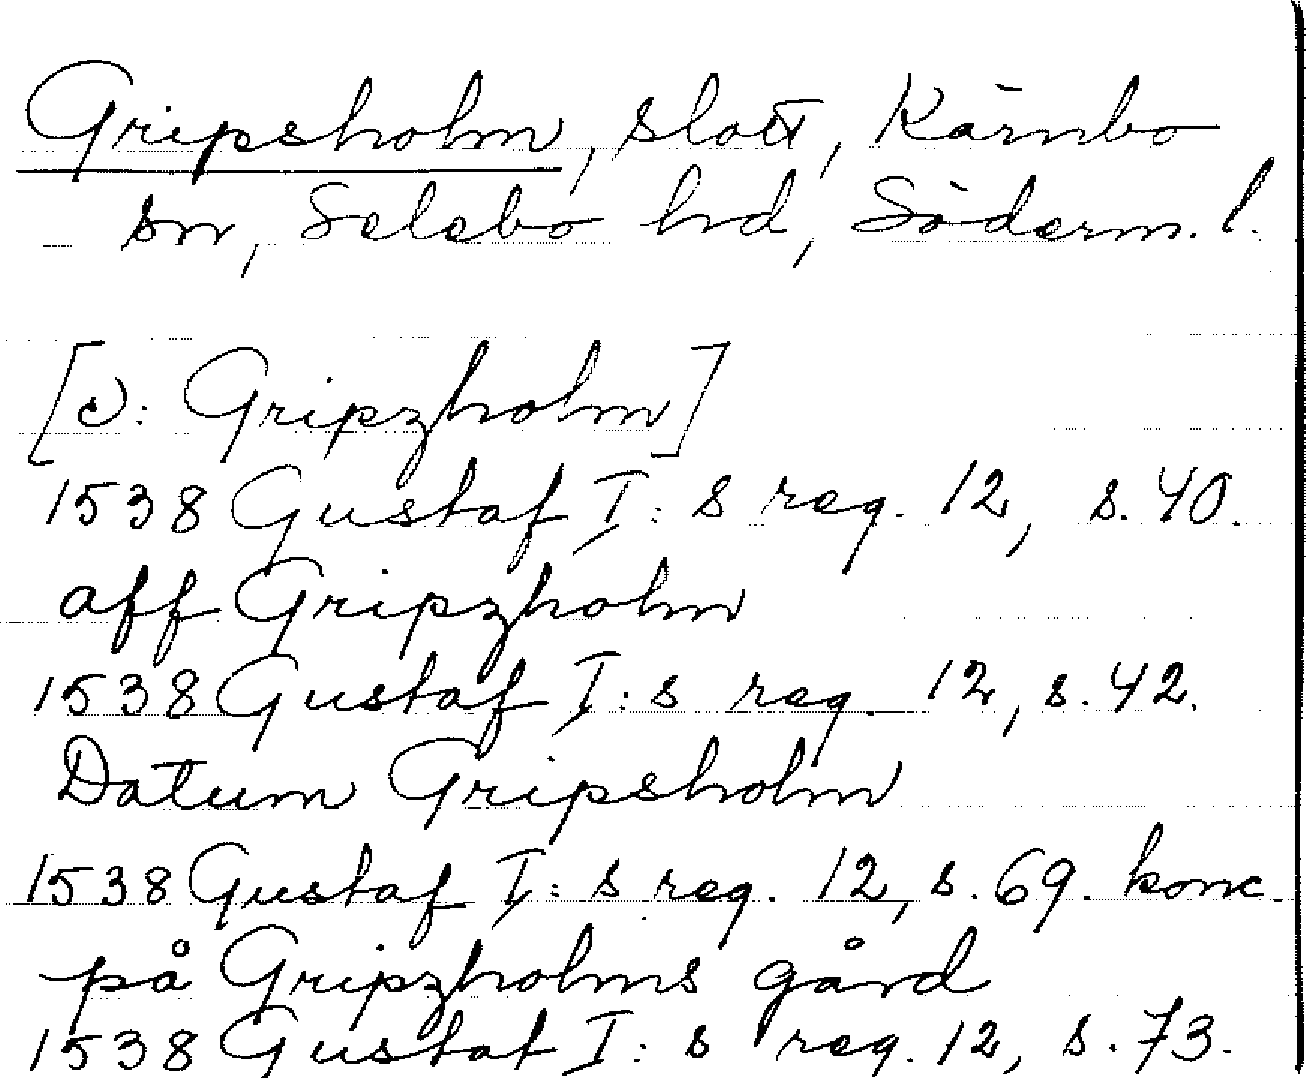 Gripsholm, slott, Kärnbo
sn, Selebo hd, Söderm. l.
[ɔ: Gripzholm]
1538 Gustaf I:s reg. 12, s. 40.
aff Gripzholm
1538 Gustaf I:s reg. 12, s. 42.
Datum Gripsholm
1538 Gustaf I:s reg. 12, s. 69. konc.
på Gripzholms gård
1538 Gustaf I:s reg. 12, s. 73.